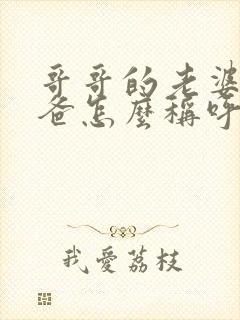 哥哥的老婆
爸怎麼稱呼
我愛荔枝